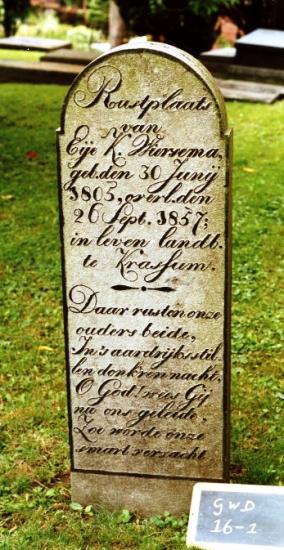 Rustplaats
van
Eije K. Wiersema,
geb. den 30 Junij
1805, overl. den
26 Sept. 1857;
in leven landb.
te Krassum.
Daar rusten onze
ouders beide,
In 's aardrijks stil
len donkren nacht,
O God! wees Gij
nu ons geleide,
Zoo worde onze
smart verzacht
GWD
16-1